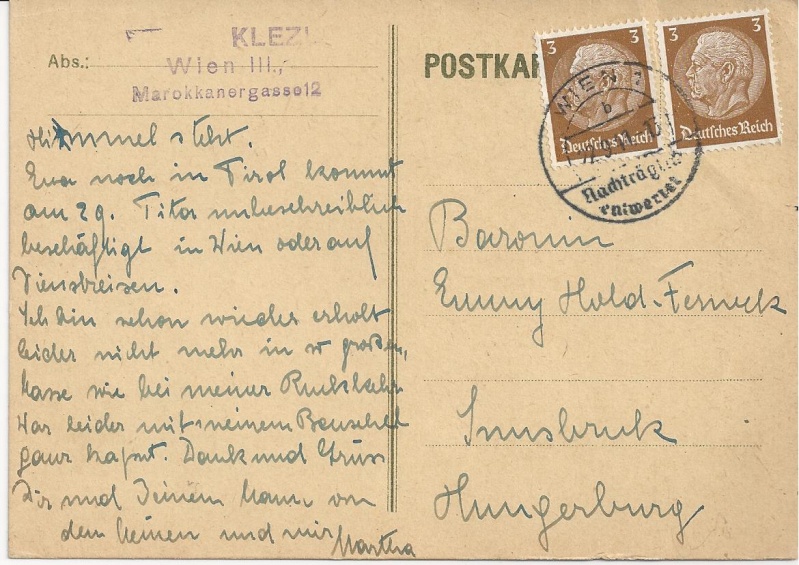 KLEZ
Abs.:
Wien III.,
Marokkanergasse12
POSTKAR
3
3
Deutsches Reich
Deutsches Reich
WIEN
b
Nachträglich
entwertet
Himmel steht.
Eva noch in Tirol kommt
am 29. Titor unbeschreiblich
beschäftigt in Wien oder auf
Dienstreisen.
Ich bin schon wieder erholt
leider nicht mehr in großen,
wie bei meiner Rückkehr
War leider mit meinem
ganz kaput. Dank und Gruss
Dir und Deinem Mann von
den meinen und mir Martha
Baronin
Emmy Hold-Ferneck
Innsbruck
Hungerburg